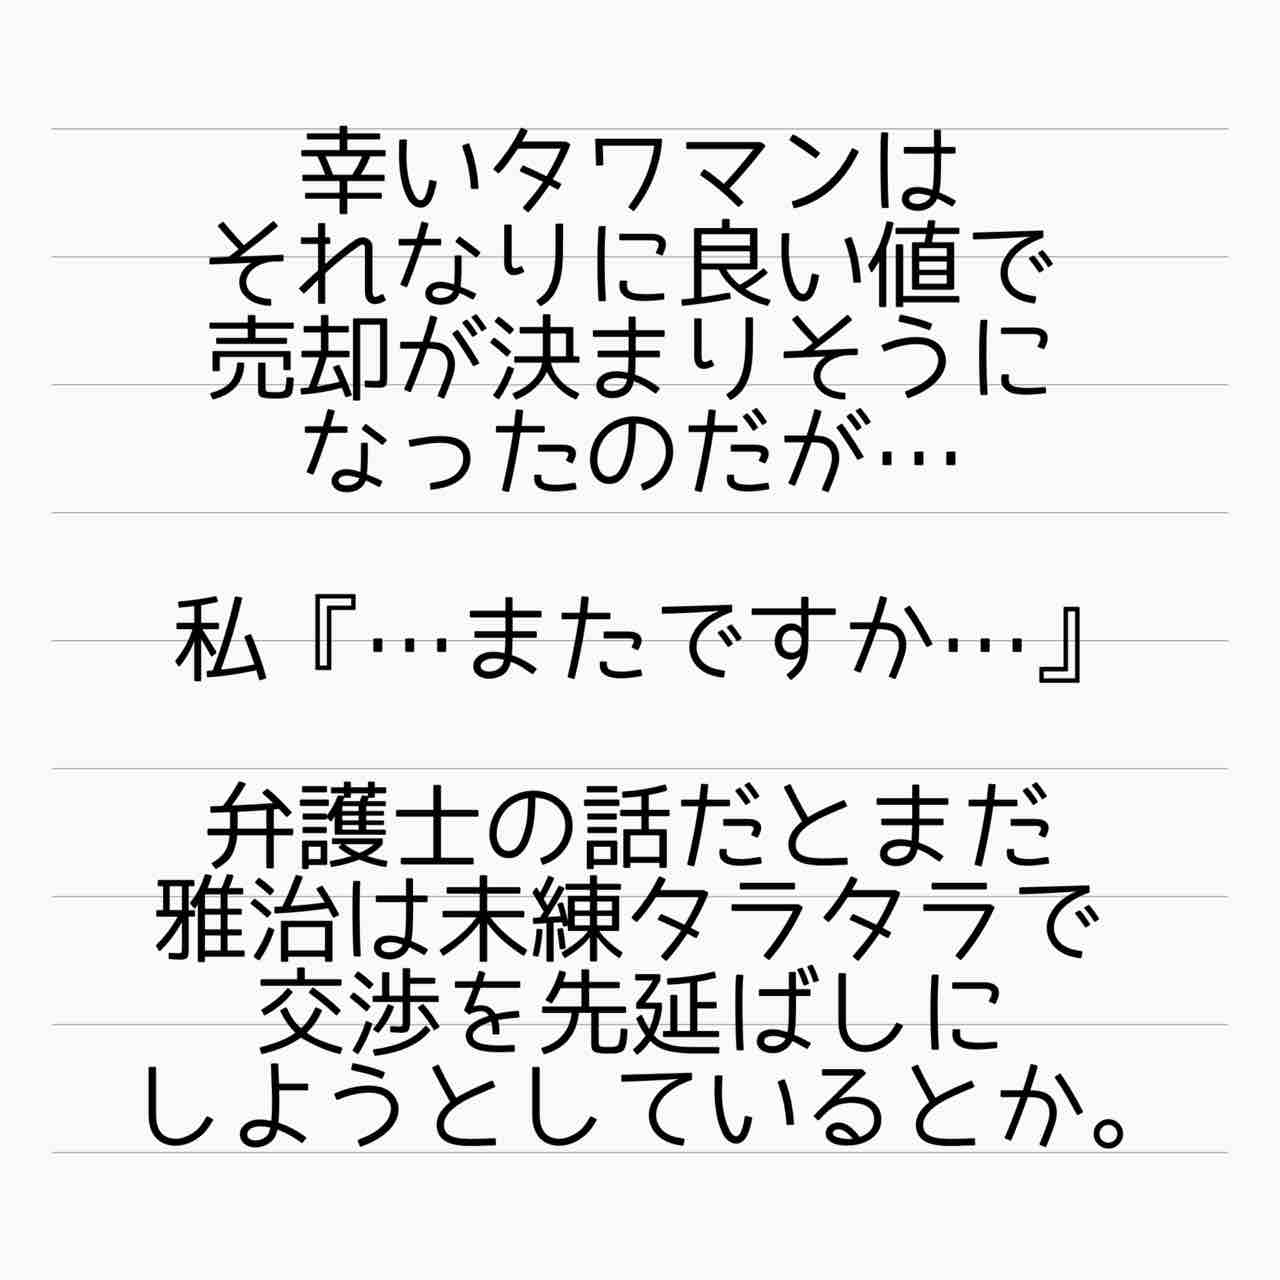 幸いタワマンは
それなりに良い値で
売却が決まりそうに
なったのだが…
私『…またですか…』
弁護士の話だとまだ
雅治は未練タラタラで
交渉を先延ばしに
しようとしているとか。